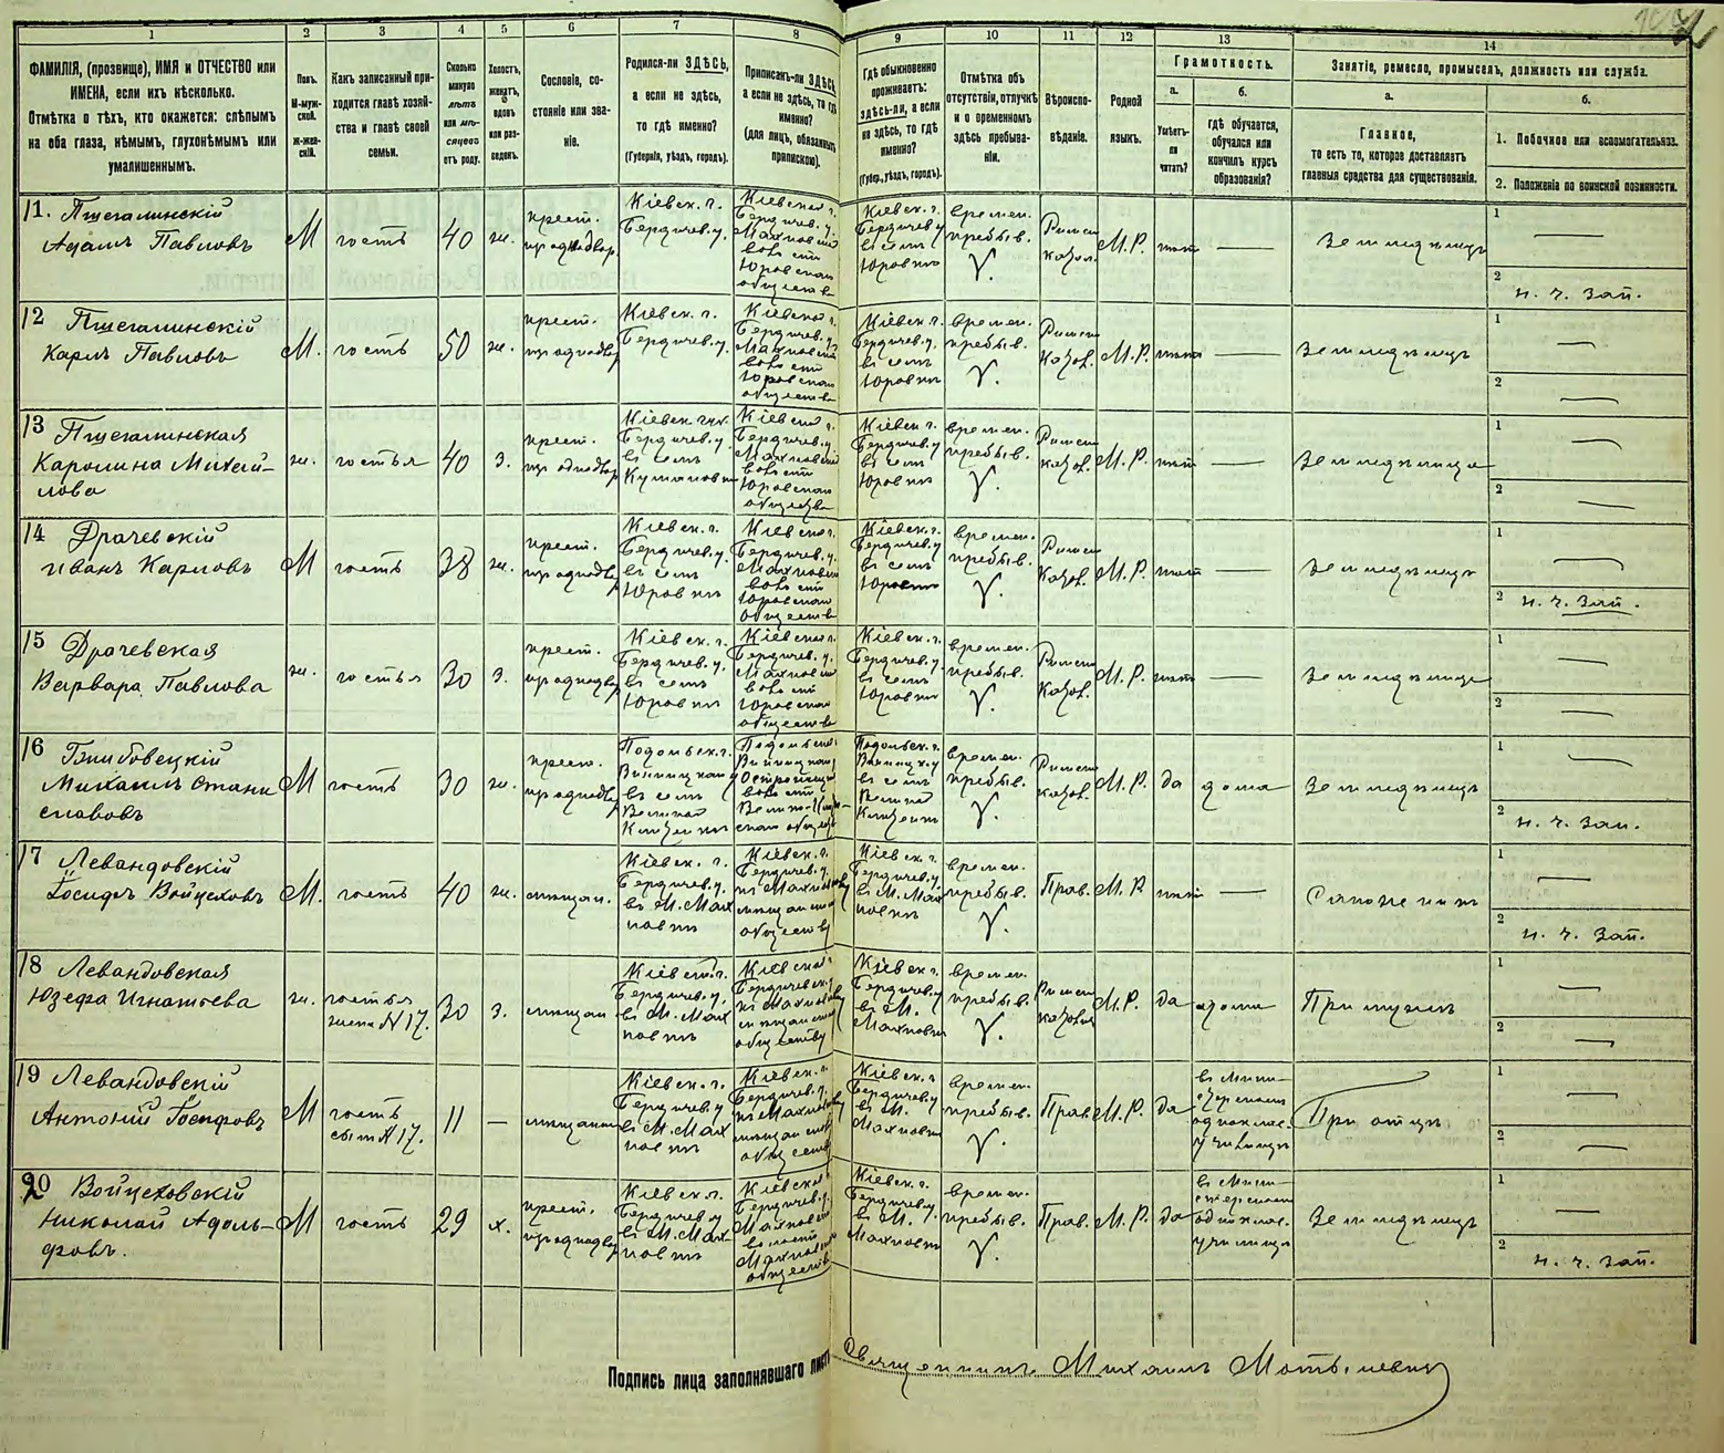 1
2
3
4
5
6
7
8
9
10
11
12
13
14
ФАМИЛІЯ, (прозвище), ИМЯ и ОТЧЕСТВО или
ИМЕНА, если ихъ нѣсколько.
Отмѣтка о тѣхъ, кто окажется: слѣпымъ
на оба глаза, нѣмымъ, глухонѣмымъ или
умалишеннымъ.
Полъ.
М-муж-
ской.
Ж-жен-
скій.
Какъ записанный при-
ходится главѣ хозяй-
ства и главѣ своей
семьи.
Сколько
минуло
лѣтъ
или мѣ-
сяцевъ
отъ роду.
Холостъ,
женатъ,
вдовъ
или раз-
веденъ.
Сословіе, со-
стояніе или зва-
ніе.
Родился-ли ЗДѢСЬ,
а если не здѣсь,
то гдѣ именно?
(Губернія, уѣздъ, городъ).
Приписанъ-ли ЗДѢСЬ,
а если не здѣсь, то гдѣ
именно?
(для лицъ, обязанныхъ
припискою).
Гдѣ обыкновенно
проживаетъ:
здѣсь-ли, а если
не здѣсь, то гдѣ
именно?
(Губер., уѣздъ, городъ).
Отмѣтка объ
отсутствіи, отлучкѣ
и о временномъ
здѣсь пребыва-
ніи.
Вѣроиспо-
вѣданіе.
Родной
языкъ.
Грамотность.
а.
Умѣетъ-
ли
читать?
б.
гдѣ обучается,
обучался или
кончилъ курсъ
образованія?
Занятіе, ремесло, промыселъ, должность или служба.
а.
Главное,
то есть то, которое доставляетъ
главныя средства для существованія.
б.
1. Побочное или вспомогательное.
2. Положеніе по воинской повинности.
11. Пшегалинскій
Адамъ Павловъ
М
гость
40
ж.
крест.
из однодвор.
Кіевск. г.
Бердичев. у.
Кіевской г.
Бердичев. у.
Махновской
волости
Юровского
общества
Кіевск. г.
Бердичев. у
въ селѣ
Юровкѣ
времен.
пребыв.
Римско
катол.
М. Р.
нѣтъ
земледѣлецъ
1
2
н. ч. зап.
12 Пшегалинскій
Карлъ Павловъ
М.
гость
50
ж.
крест.
из однодвор
Кіевск. г.
Бердичев. у.
Кіевской г.
Бердичев. у.
Махновской
волости
Юровского
общества
Кіевск. г.
Бердичев. у.
въ селѣ
Юровкѣ
времен.
пребыв.
Римско
катол.
М. Р.
нѣтъ
земледѣлецъ
1
2
13 Пшегалинская
Каролина Михай-
лова
ж.
гостья
40
з.
крест.
из однодвор
Кіевск. губ.
Бердичев. у.
въ селѣ
Кіевской г.
Бердичев. у.
Махновской
волости
Юровского
общества
Кіевск. г.
Бердичев. у
въ селѣ
Юровкѣ
времен.
пребыв.
Римско
катол.
М. Р.
нѣтъ
земледѣлица
1
2
14 Драчевскій
Иванъ Карловъ
М
гость
38
ж.
крест.
из однодвор
Кіевск. г.
Бердичев. у.
въ селѣ
Юровкѣ
Кіевской г.
Бердичев. у.
Махновской
волости
Юровского
общества
Кіевск. г.
Бердичев. у
въ селѣ
Юровкѣ
времен.
пребыв.
Римско
Катол.
М. Р.
нѣтъ
земледѣлецъ
1
2
н. ч. зап.
15 Драчевская
Варвара Павлова
ж.
гостья
30
з.
крест.
из однодвор
Кіевск. г.
Бердичев. у.
въ селѣ
Юровкѣ
Кіевской г.
Бердичев. у.
Махновской
волости
Юровского
общества
Кіевск. г.
Бердичев. у.
въ селѣ
Юровкѣ
времен.
пребыв.
Римско
Катол.
М. Р.
нѣтъ
земледѣлица
1
2
16
Михаилъ Стани
славовъ
М
гость
30
ж.
крест.
из однодвор
Подольск. г.
Винницкаго у
въ селѣ
Великой
Подольской
Винницкаго
волости
Подольск. г.
Винницк. у
въ селѣ
Великой
времен.
пребыв.
Римско
катол.
М. Р.
да
дома
земледѣлецъ
1
2
н. ч. зап.
17 Левандовскій
Іосифъ Войцеховъ
М.
гость
40
ж.
мѣщан.
Кіевск. г.
Бердичев. у.
въ М. Мах
новкѣ
Кіевск. г.
Бердичев. у.
къ Махновскому
мѣщанскому
обществу
Кіевск. г.
Бердичев. у
въ М. Мах
новкѣ
времен.
пребыв.
Прав.
М. Р.
нѣтъ
Сапожникъ
1
2
н. ч. зап.
18 Левандовская
Юзефа Игнатьева
ж.
гостья
жена N 17.
30
з.
мѣщан
Кіевск. г.
Бердичев. у.
въ М. Мах
новкѣ
Кіевской
Бердичевск. у
къ Махновскому
мѣщанскому
обществу
Кіевск. г.
Бердичев. у
въ М.
Махновкѣ
времен.
пребыв.
Римско
католич
М. Р.
да
дома
При мужѣ
1
2
19 Левандовскій
Антоній Іосифовъ
М
гость
сын N 17.
11
мѣщанин
Кіевск. г.
Бердичев. у
въ М. Мах
новкѣ
Кіевск. г.
Бердичев. у.
къ Махновскому
мѣщанскому
обществу
Кіевск. г
Бердичев. у
въ М.
Махновкѣ
времен.
пребыв.
Прав.
М. Р.
да
въ Мини-
стерском
одноклас.
училищѣ
При отцѣ
1
2
20 Войцеховскій
Николай Адоль-
фовъ.
М
гость
29
х.
крест.
из однодвор
Кіевск. г.
Бердичев. у
въ М. Мах
новкѣ
Кіевской г
Бердичев. у.
Махновской
волости
Махновского
общества
Кіевск. г.
Бердичев. у.
въ М.
Махновкѣ
времен.
пребыв.
Прав.
М. Р.
да
въ Мини-
стерском
одноклас.
училищѣ
земледѣлецъ
1
2
н. ч. зап.
Подпись лица заполнявшаго листъ
Священникъ Михаилъ